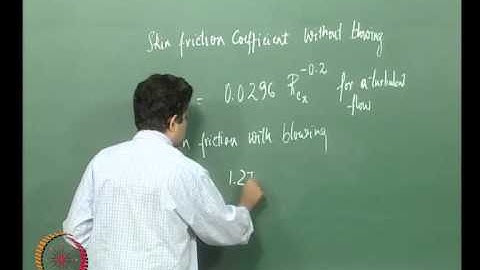 Skin friction Coefficient without blowing
= 0.0296 Rex^-0.2 for a turbulent
flow
friction with blowing
1.27